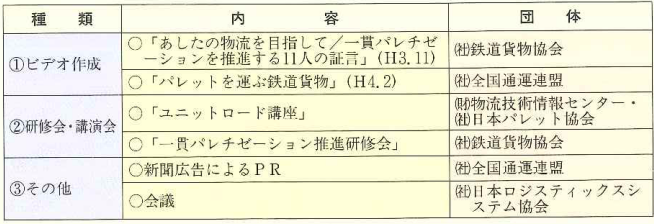 種類 内容 団体
①ビデオ作成
○「あしたの物流を目指して/一貫パレチゼ
ーションを推進する11人の証言」(H3.11)
㈳鉄道貨物協会
○「パレットを運ぶ鉄道貨物」(H4.2)
㈳全国通運連盟
②研修会・講演会
○「ユニットロード講座」
㈶物流技術情報センター・
㈳日本パレット協会
○「一貫パレチゼーション推進研修会」
㈳鉄道貨物協会
③その他
○新聞広告によるPR
㈳全国通運連盟
○会議
㈳日本ロジスティックスシ
ステム協会